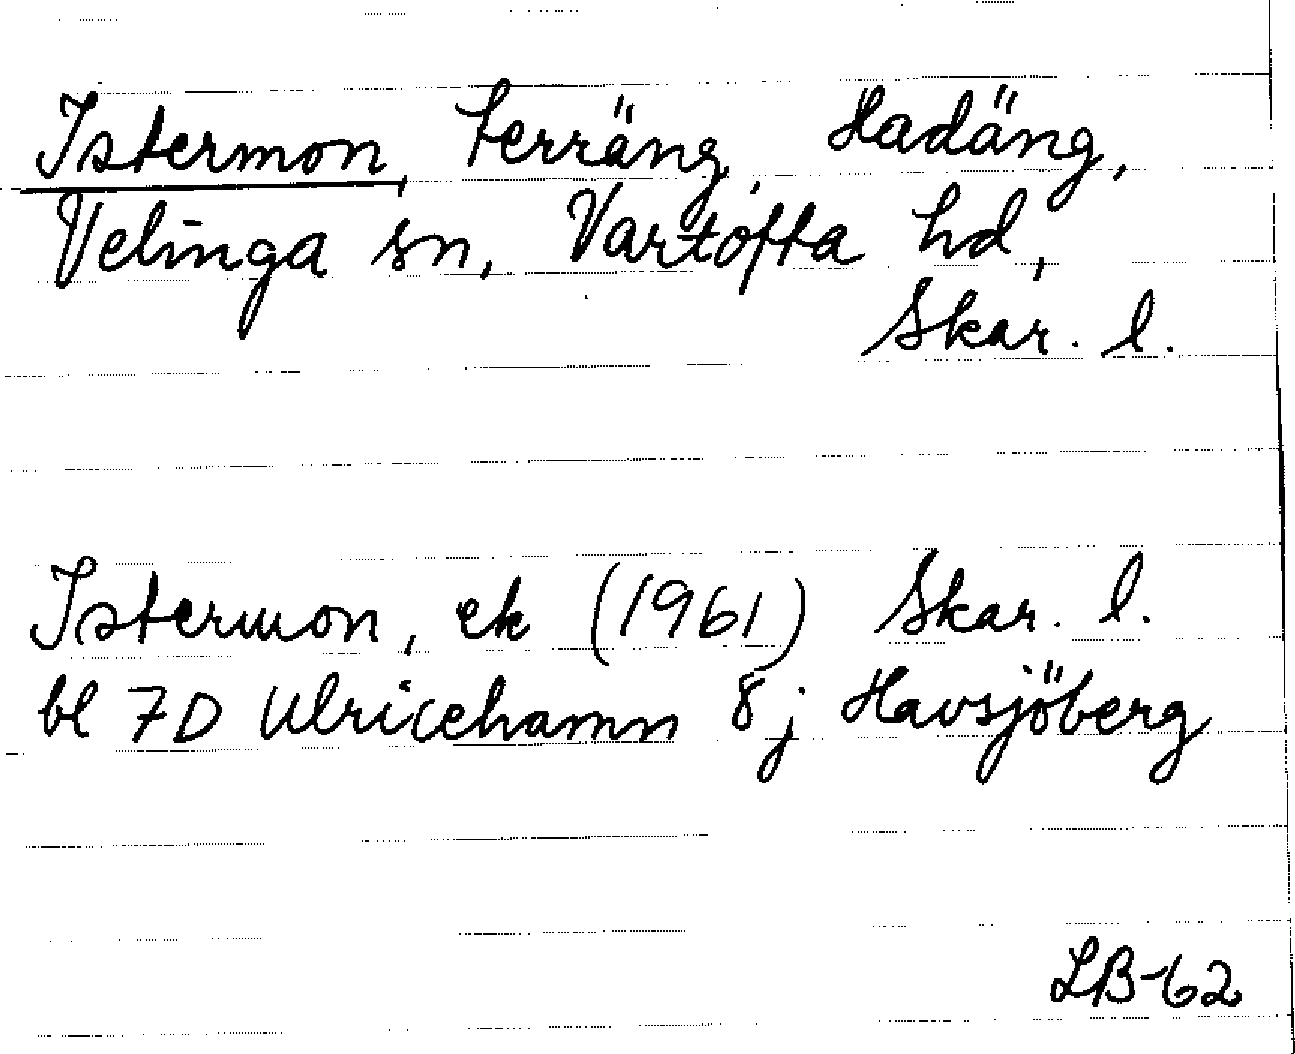 Istermon, terräng, Hadäng,
Velinga sn, Vartofta hd,
Skar. l.
Istermon, ek (1961) Skar. l.
bl 7D Ulricehamn 8j Havsjöberg
LB-62